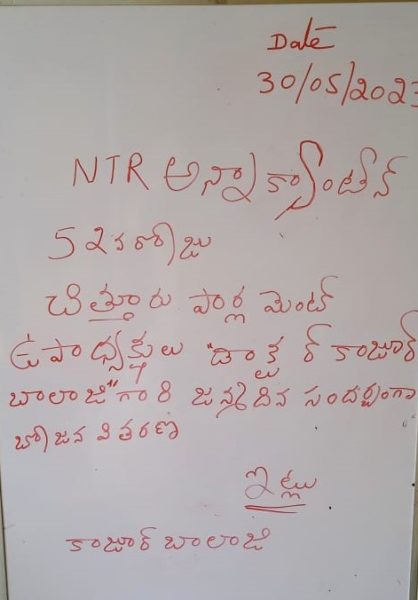 Date
30/05/2023
NTR అన్నా క్యాంటీన్
52వ రోజు
చిత్తూరు పార్లమెంట్
ఉపాధ్యక్షులు "డాక్టర్ కాజూర్
బాలాజి" గారి జన్మదిన సందర్భంగా
బోజన వితరణ
ఇట్లు
కాజూర్ బాలాజి